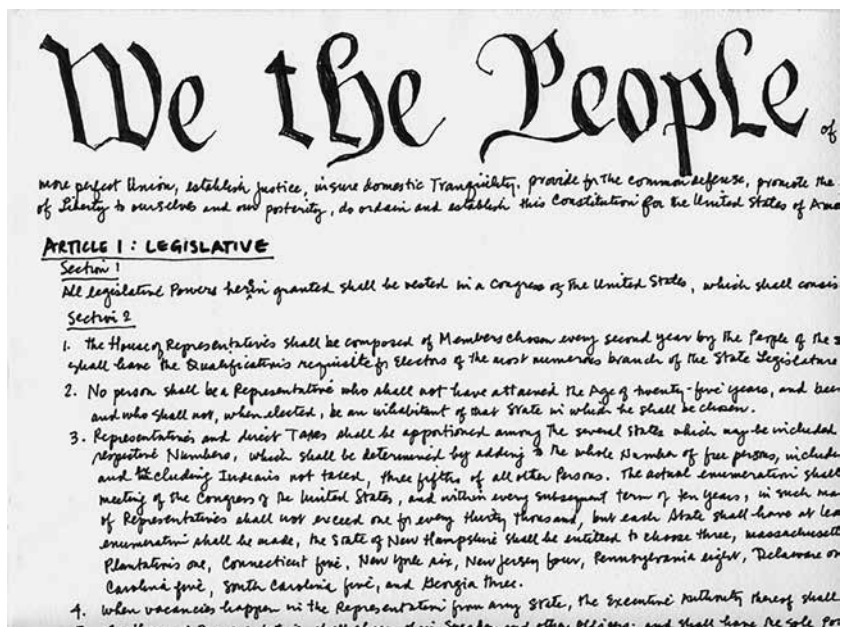 We the People of
more perfect Union, establish justice, insure domestic Tranquility, provide for the common defense, promote the
of Liberty to ourselves and our posterity, do ordain and establish this Constitution for the United States of Ame
ARTICLE I : LEGISLATIVE
Section 1
All legislative Powers herein granted shall be vested in a Congress of the United States, which shall consis
Section 2
1. The House of Representatives shall be composed of Members chosen every second year by the People of the s
shall have the Qualifications requisite for Electors of the most numerous branch of the State Legislature
2. No person shall be a Representative who shall not have attained the Age of twenty-five years, and been
and who shall not, when elected, be an inhabitant of that State in which he shall be chosen.
3. Representatives and direct Taxes shall be apportioned among the several States which may be included
respective Numbers, which shall be determined by adding to the whole Number of free persons, includi
and excluding Indians not taxed, three fifths of all other Persons. The actual enumeration shall
meeting of the Congress of the United States, and within every subsequent term of ten years, in such man
of Representatives shall not exceed one for every thirty thousand, but each State shall have at lea
enumeration shall be made, the State of New Hampshire shall be entitled to choose three, massachusett
Plantations one, Connecticut five, New York six, New Jersey four, Pennsylvania eight, Delaware on
Carolina five, South Carolina five, and Georgia three.
4. When vacancies happen in the Representation from any State, the Executive Authority thereof shall
Speaker and other officers; and shall have the sole Pow